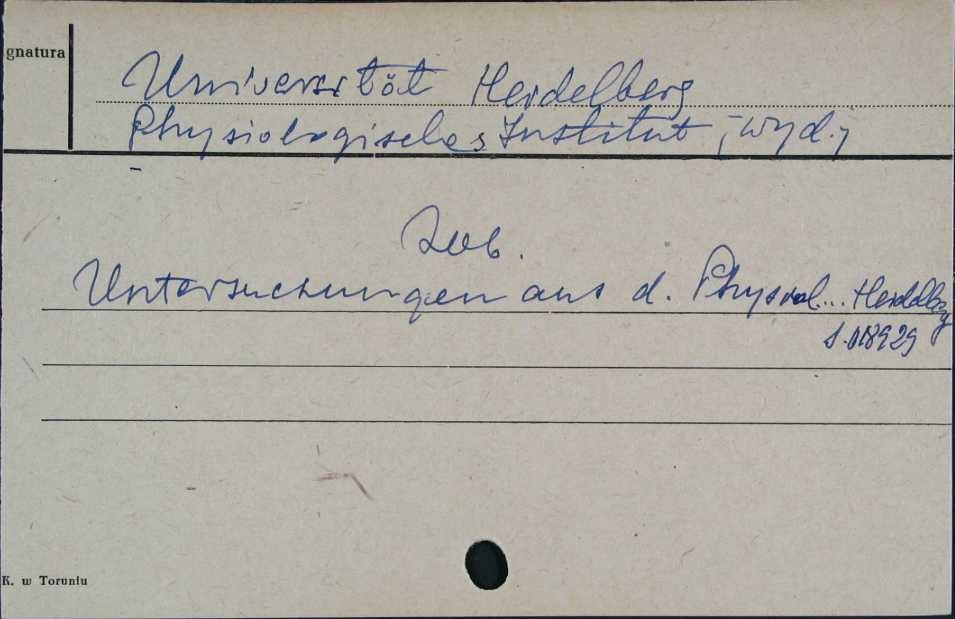 gnatura
Universität Heidelberg
Physiologisches Institut, wyd.
Zob.
Untersuchungen aus d. Physiol... Heidelberg
S.018929
K. w Toruniu